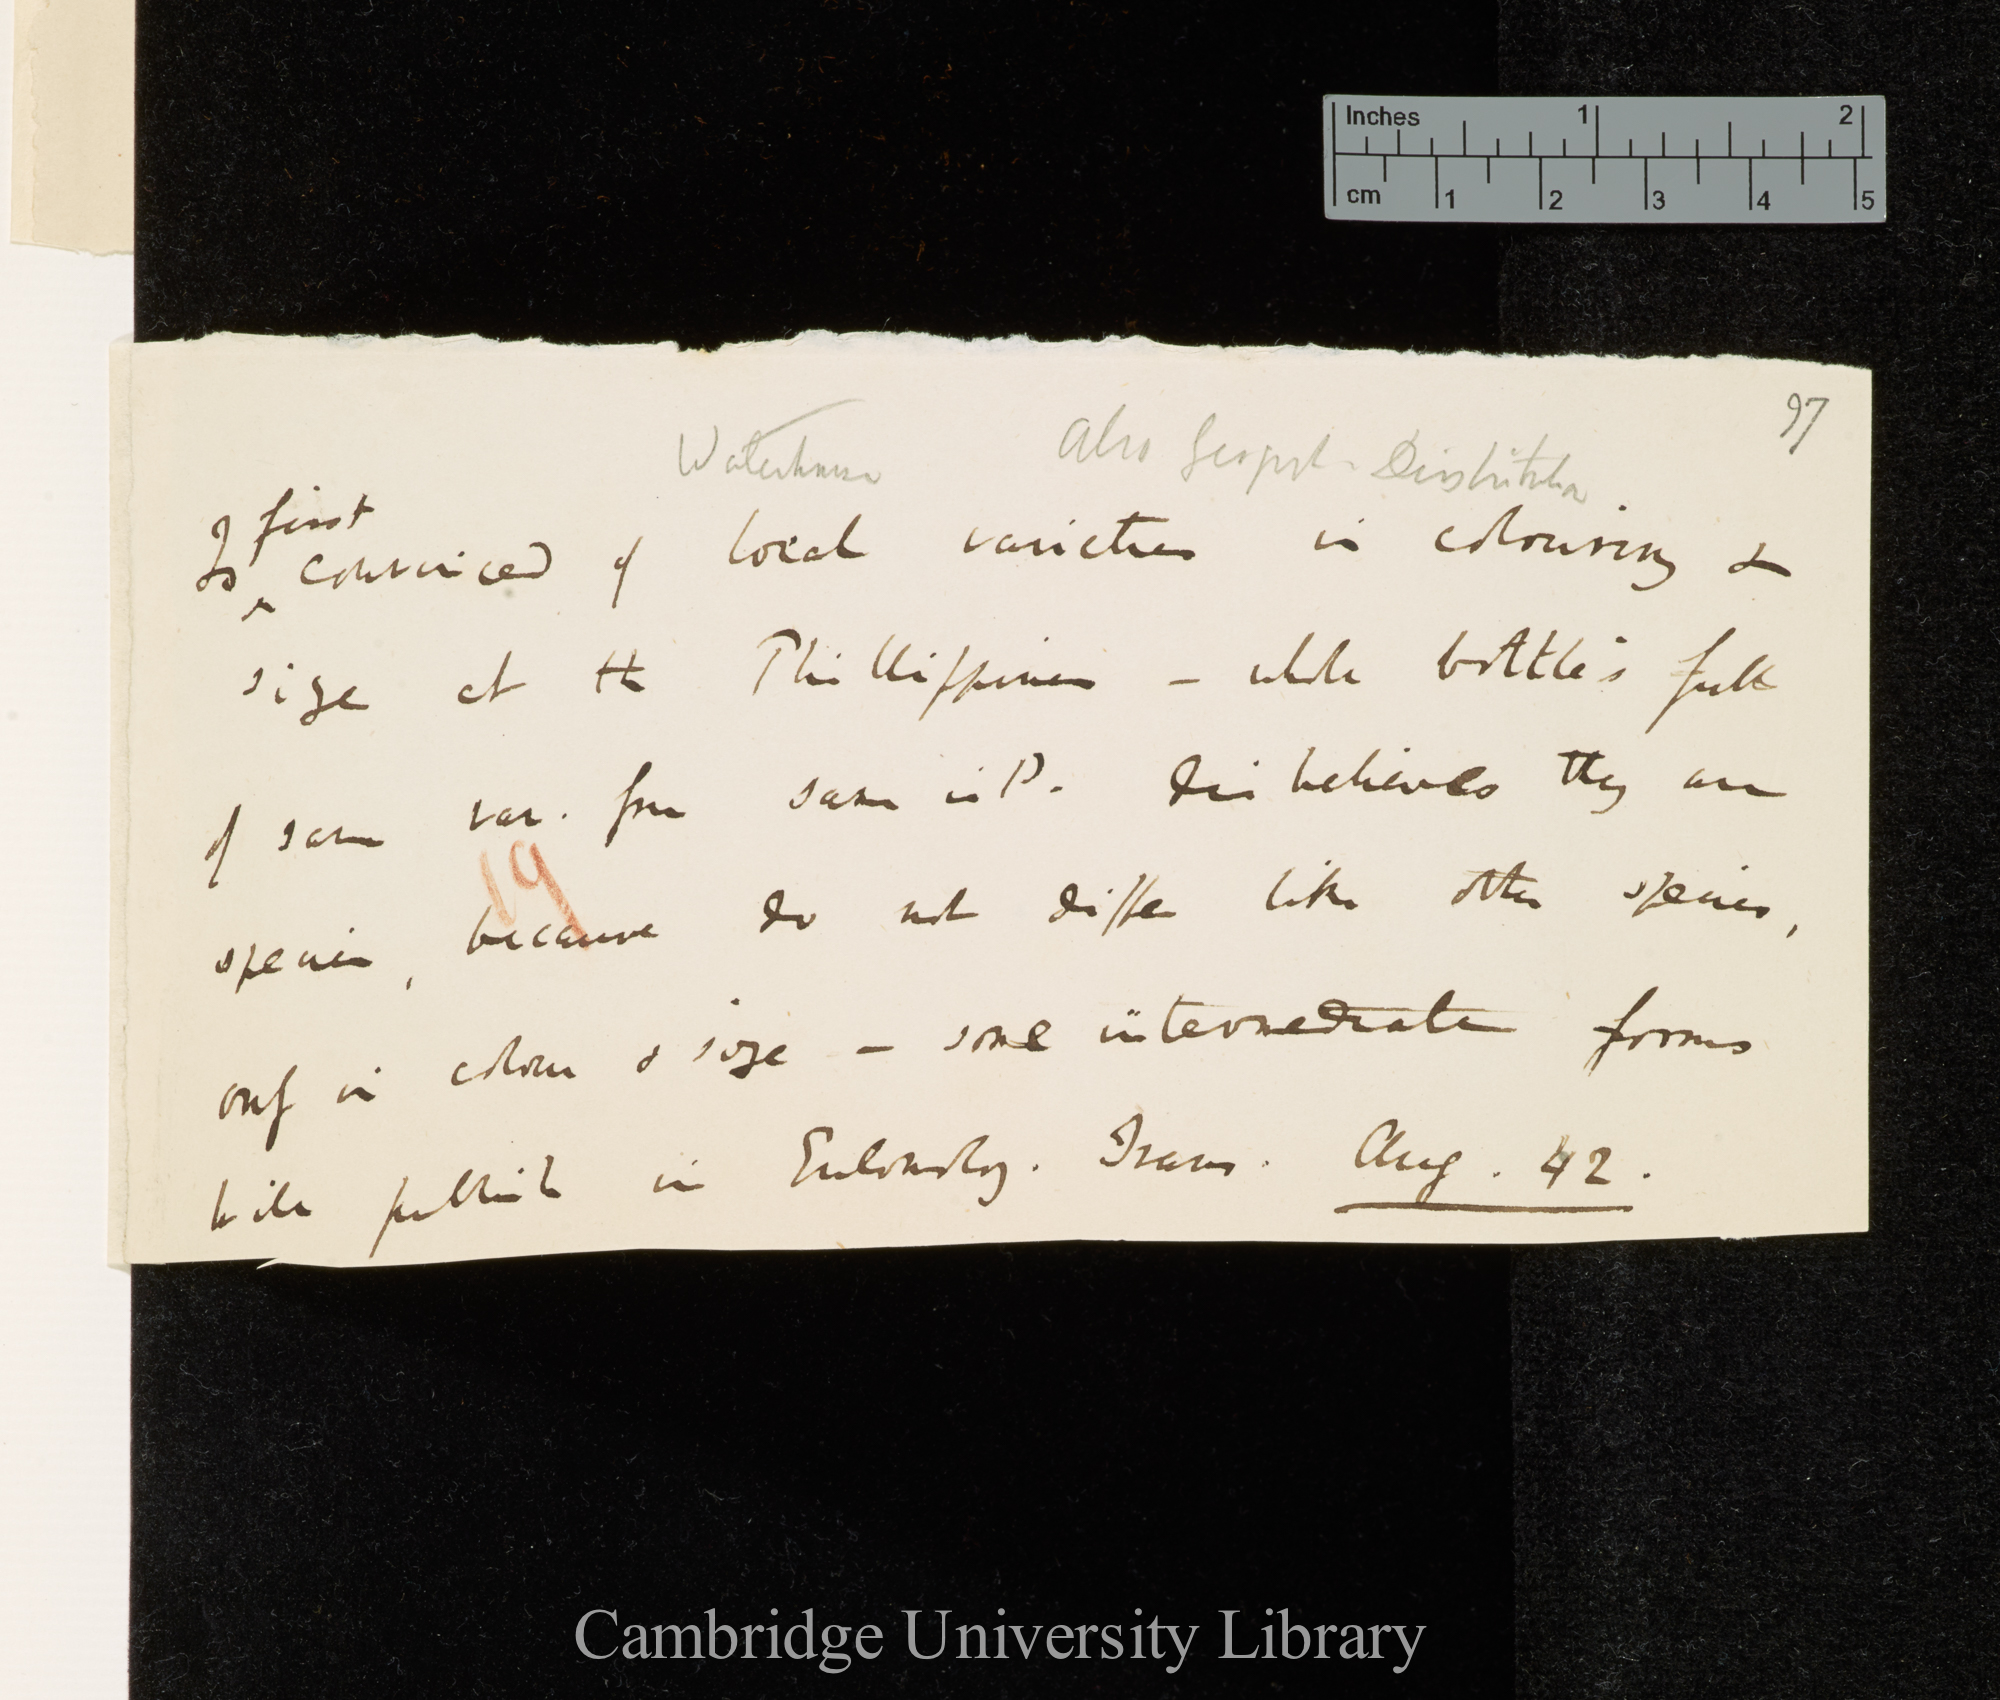 Inches 1 2
cm 1 2 3 4 5
97
Waterhouse Also Geograph. Distribution.
first
Is convinced of local varieties in colouring &
size at the Phillippines — whole bottles full
of same var. from same isld. Disbelieves they are
19
species, because do not differ like other species,
only in colour & size — some intermediate forms
will publish in Entomolog. Trans. Aug. 42.
Cambridge University Library